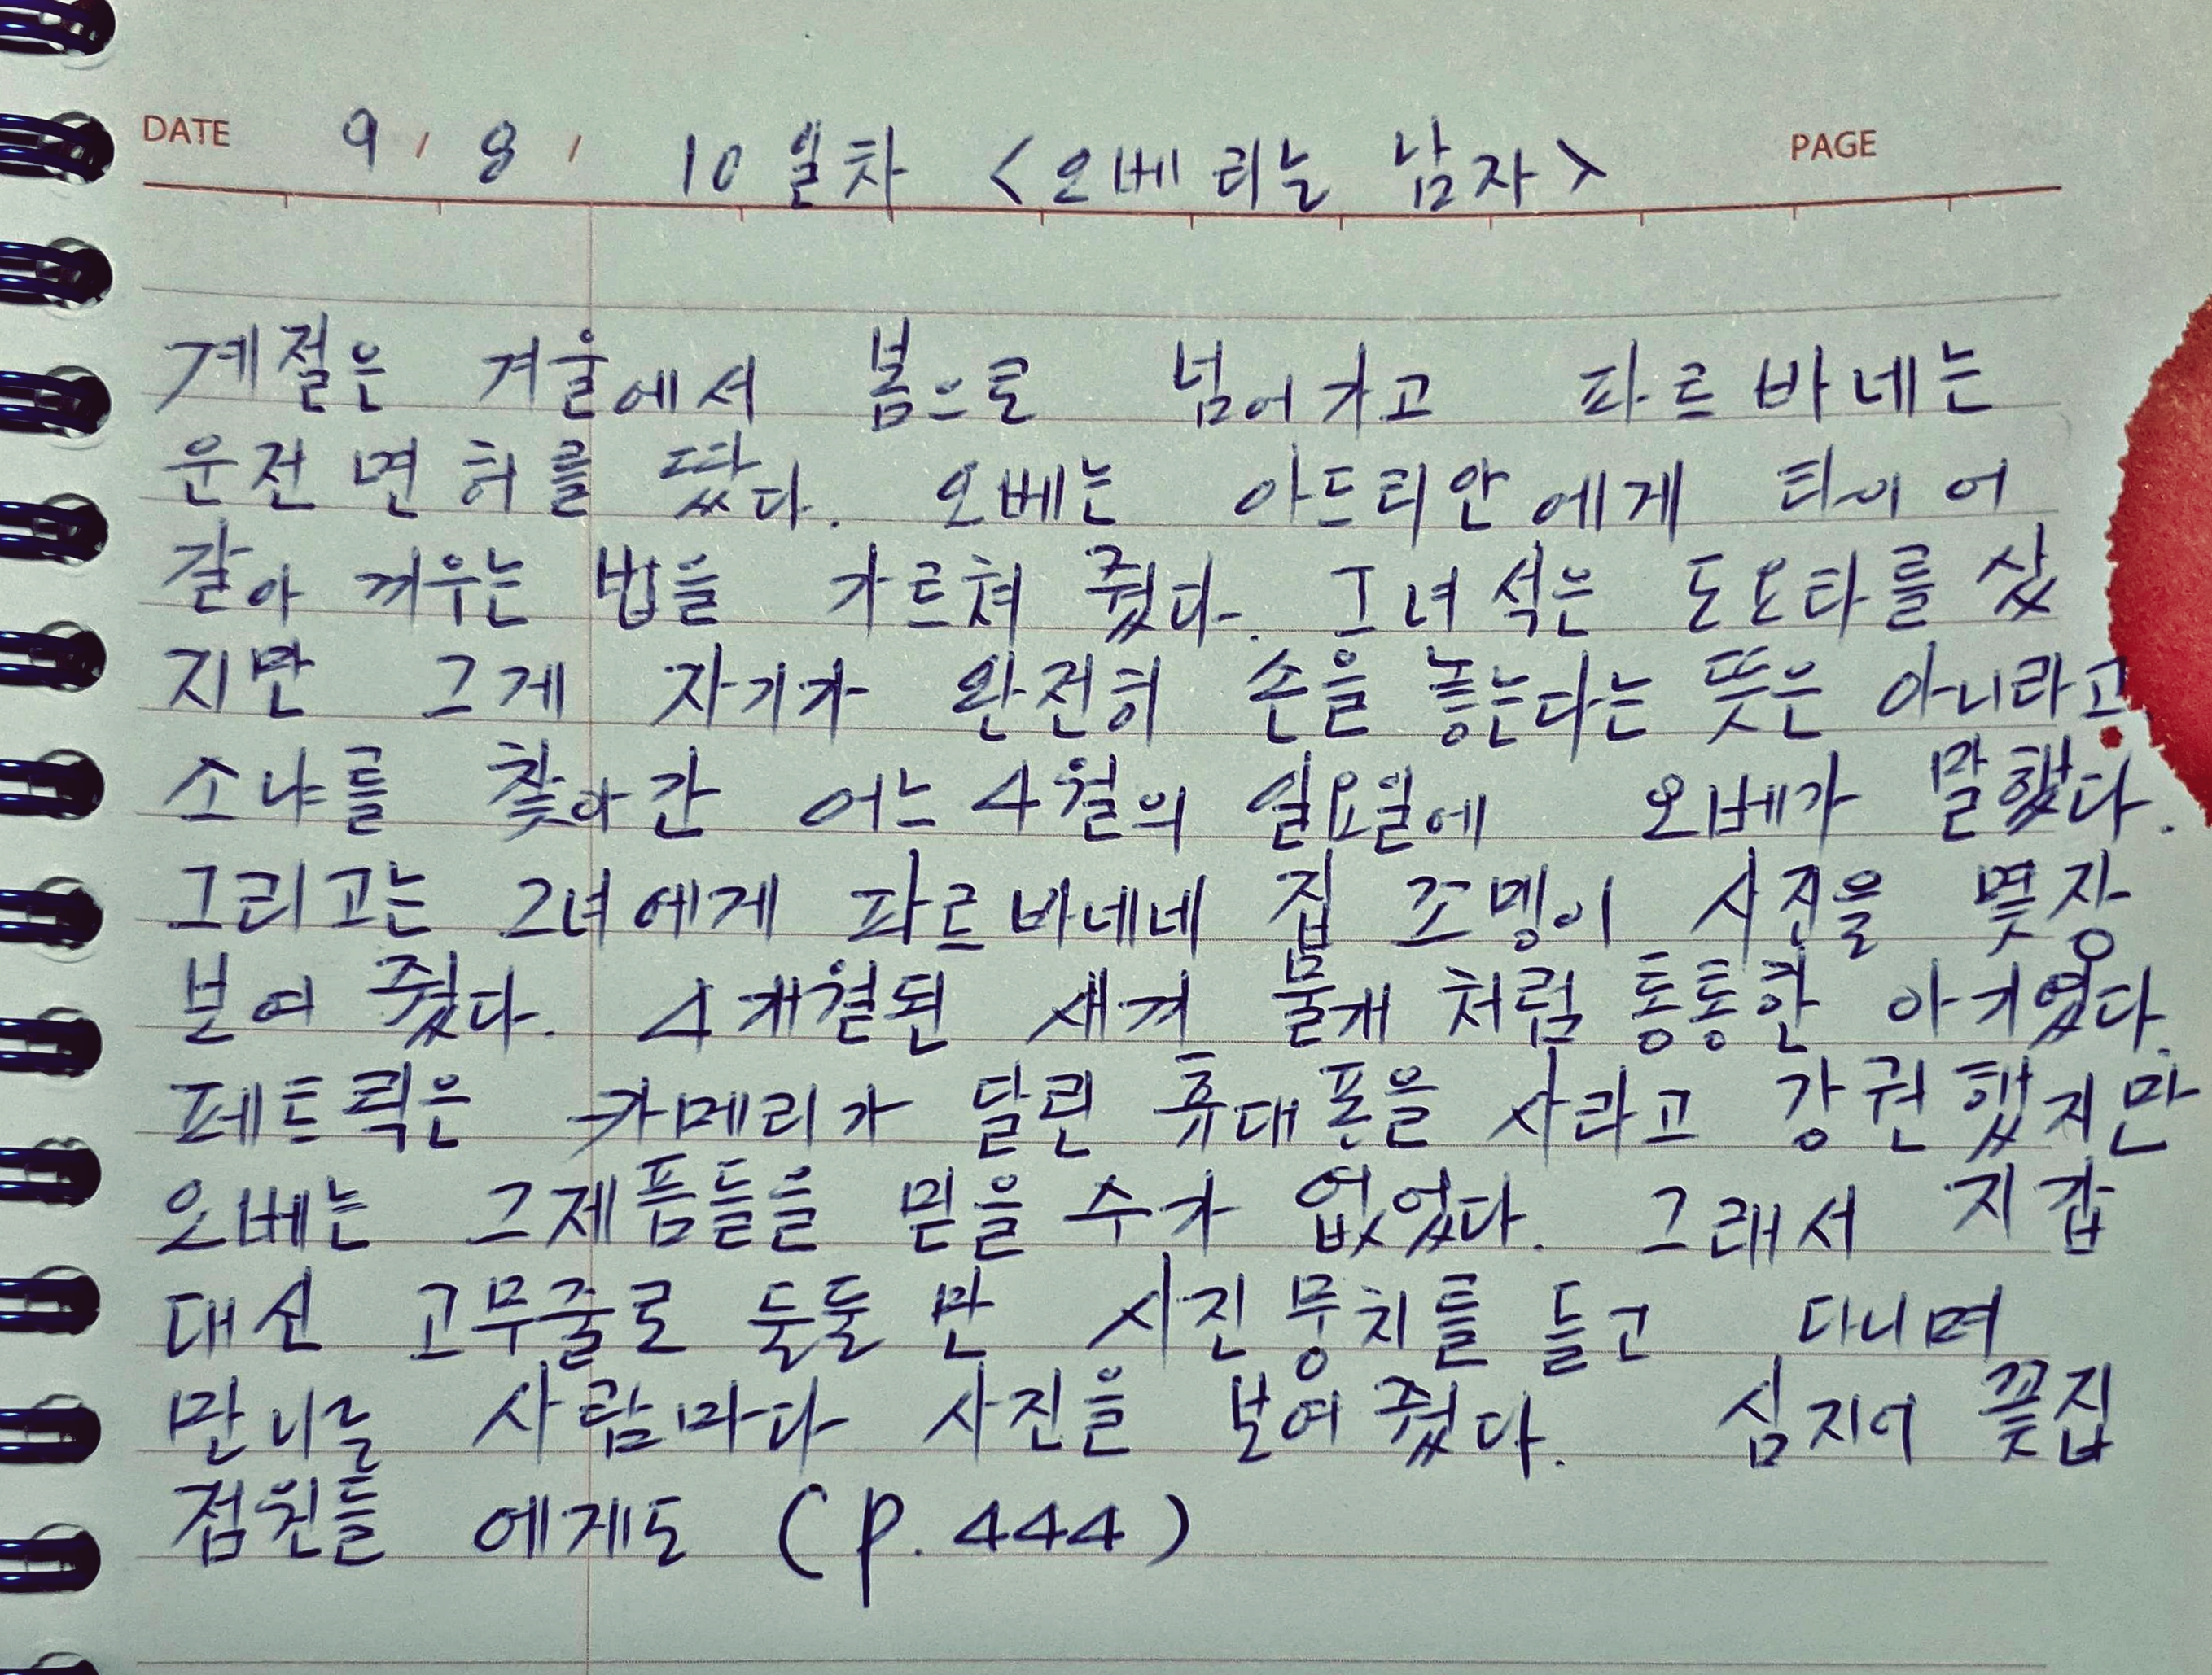 DATE 9 / 8 / 10일차 <오베라는 남자> PAGE
계절은 겨울에서 봄으로 넘어가고 파르바네는
운전면허를 땄다. 오베는 아드리안에게 타이어
갈아 끼우는 법을 가르쳐 줬다. 그녀석은 도요타를 샀
지만 그게 자기가 완전히 손을 놓는다는 뜻은 아니라고
소냐를 찾아간 어느 4월의 일요일에 오베가 말했다.
그리고는 그녀에게 파르바네네 집 꼬맹이 사진을 몇장
보여 줬다. 4개월된 새끼 물개처럼 통통한 아기였다.
페트릭은 카메라가 달린 휴대폰을 사라고 강권했지만
오베는 그제품들을 믿을 수가 없었다. 그래서 지갑
대신 고무줄로 둘둘 만 사진뭉치를 들고 다니며
만나는 사람마다 사진을 보여줬다. 심지어 꽃집
점원들에게도 (p. 444)